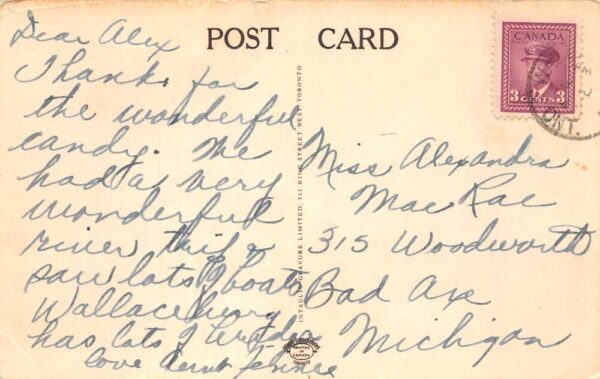 POST CARD
CANADA
3 CENTS 3
ONT.
Dear Alex
Thanks for
the wonderful
candy. We
had a very
wonderful
river trip &
saw lots of boats
Wallaceburg
has lots of
love Aunt Jennie
Miss Alexandra
MacRae
315 Woodworth
Bad Axe
Michigan
INTAGLIO GRAVURE LIMITED, 212 KING STREET WEST TORONTO
PRINTED IN CANADA
TORONTO